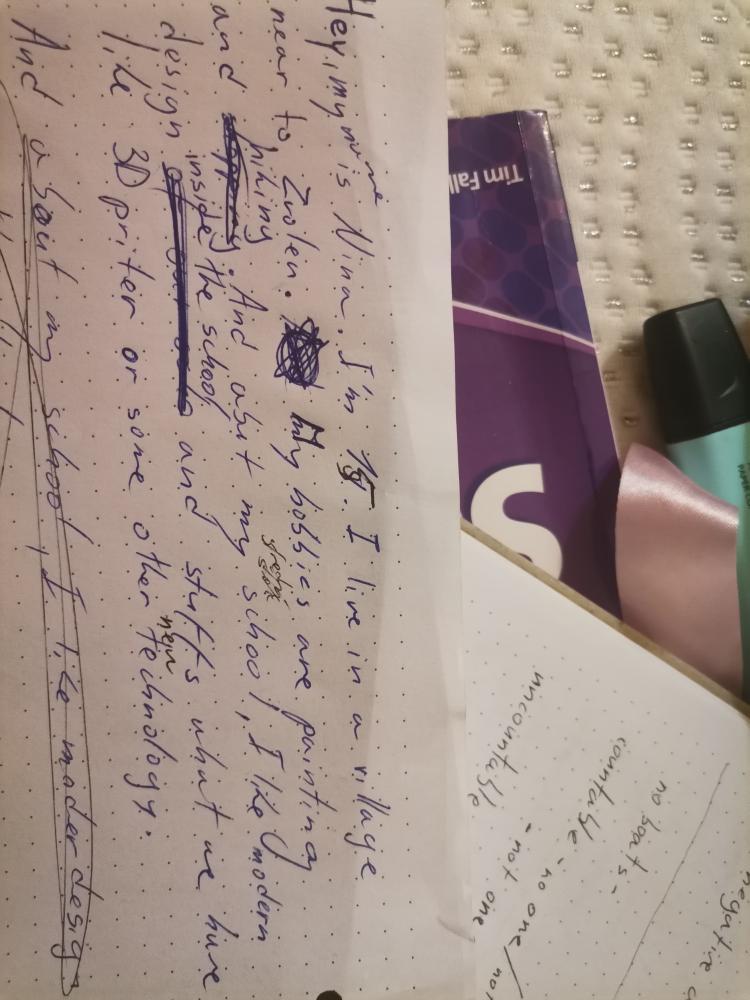 Hey, my name is Nina. I'm 15. I live in a village
near to Zvolen. My hobbies are painting
and hiking. And abit my school, I like modern
design inside the school and stuffs what we have
like 3D priter or some other new technology.
And about my school, I like moder design
Tim Fall
S
no boats -
countable - no one/
uncountable - not one
negative